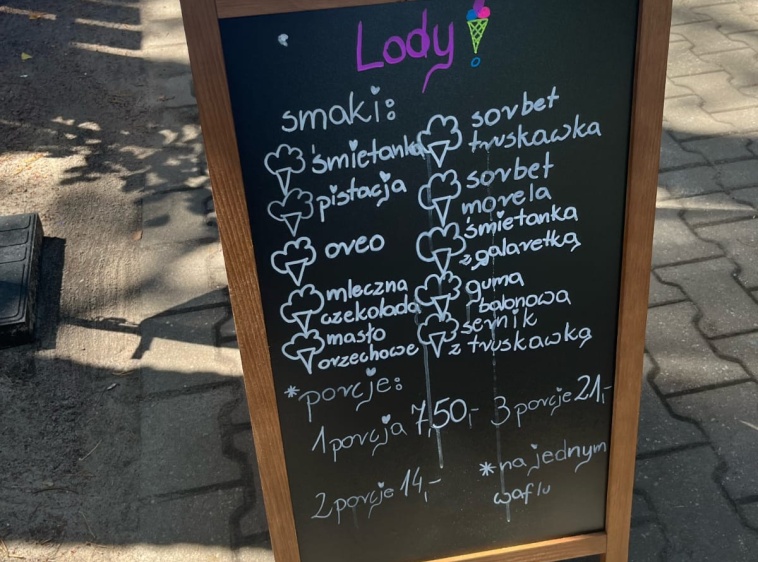 Lody
smaki:
śmietanka
pistacja
oreo
mleczna
czekolada
masło
orzechowe
sorbet
truskawka
sorbet
morela
śmietanka
z galaretką
guma
balonowa
sernik
z truskawką
*porcje:
1 porcja 7,50,-
2 porcje 14,-
3 porcje 21,-
*na jednym
waflu